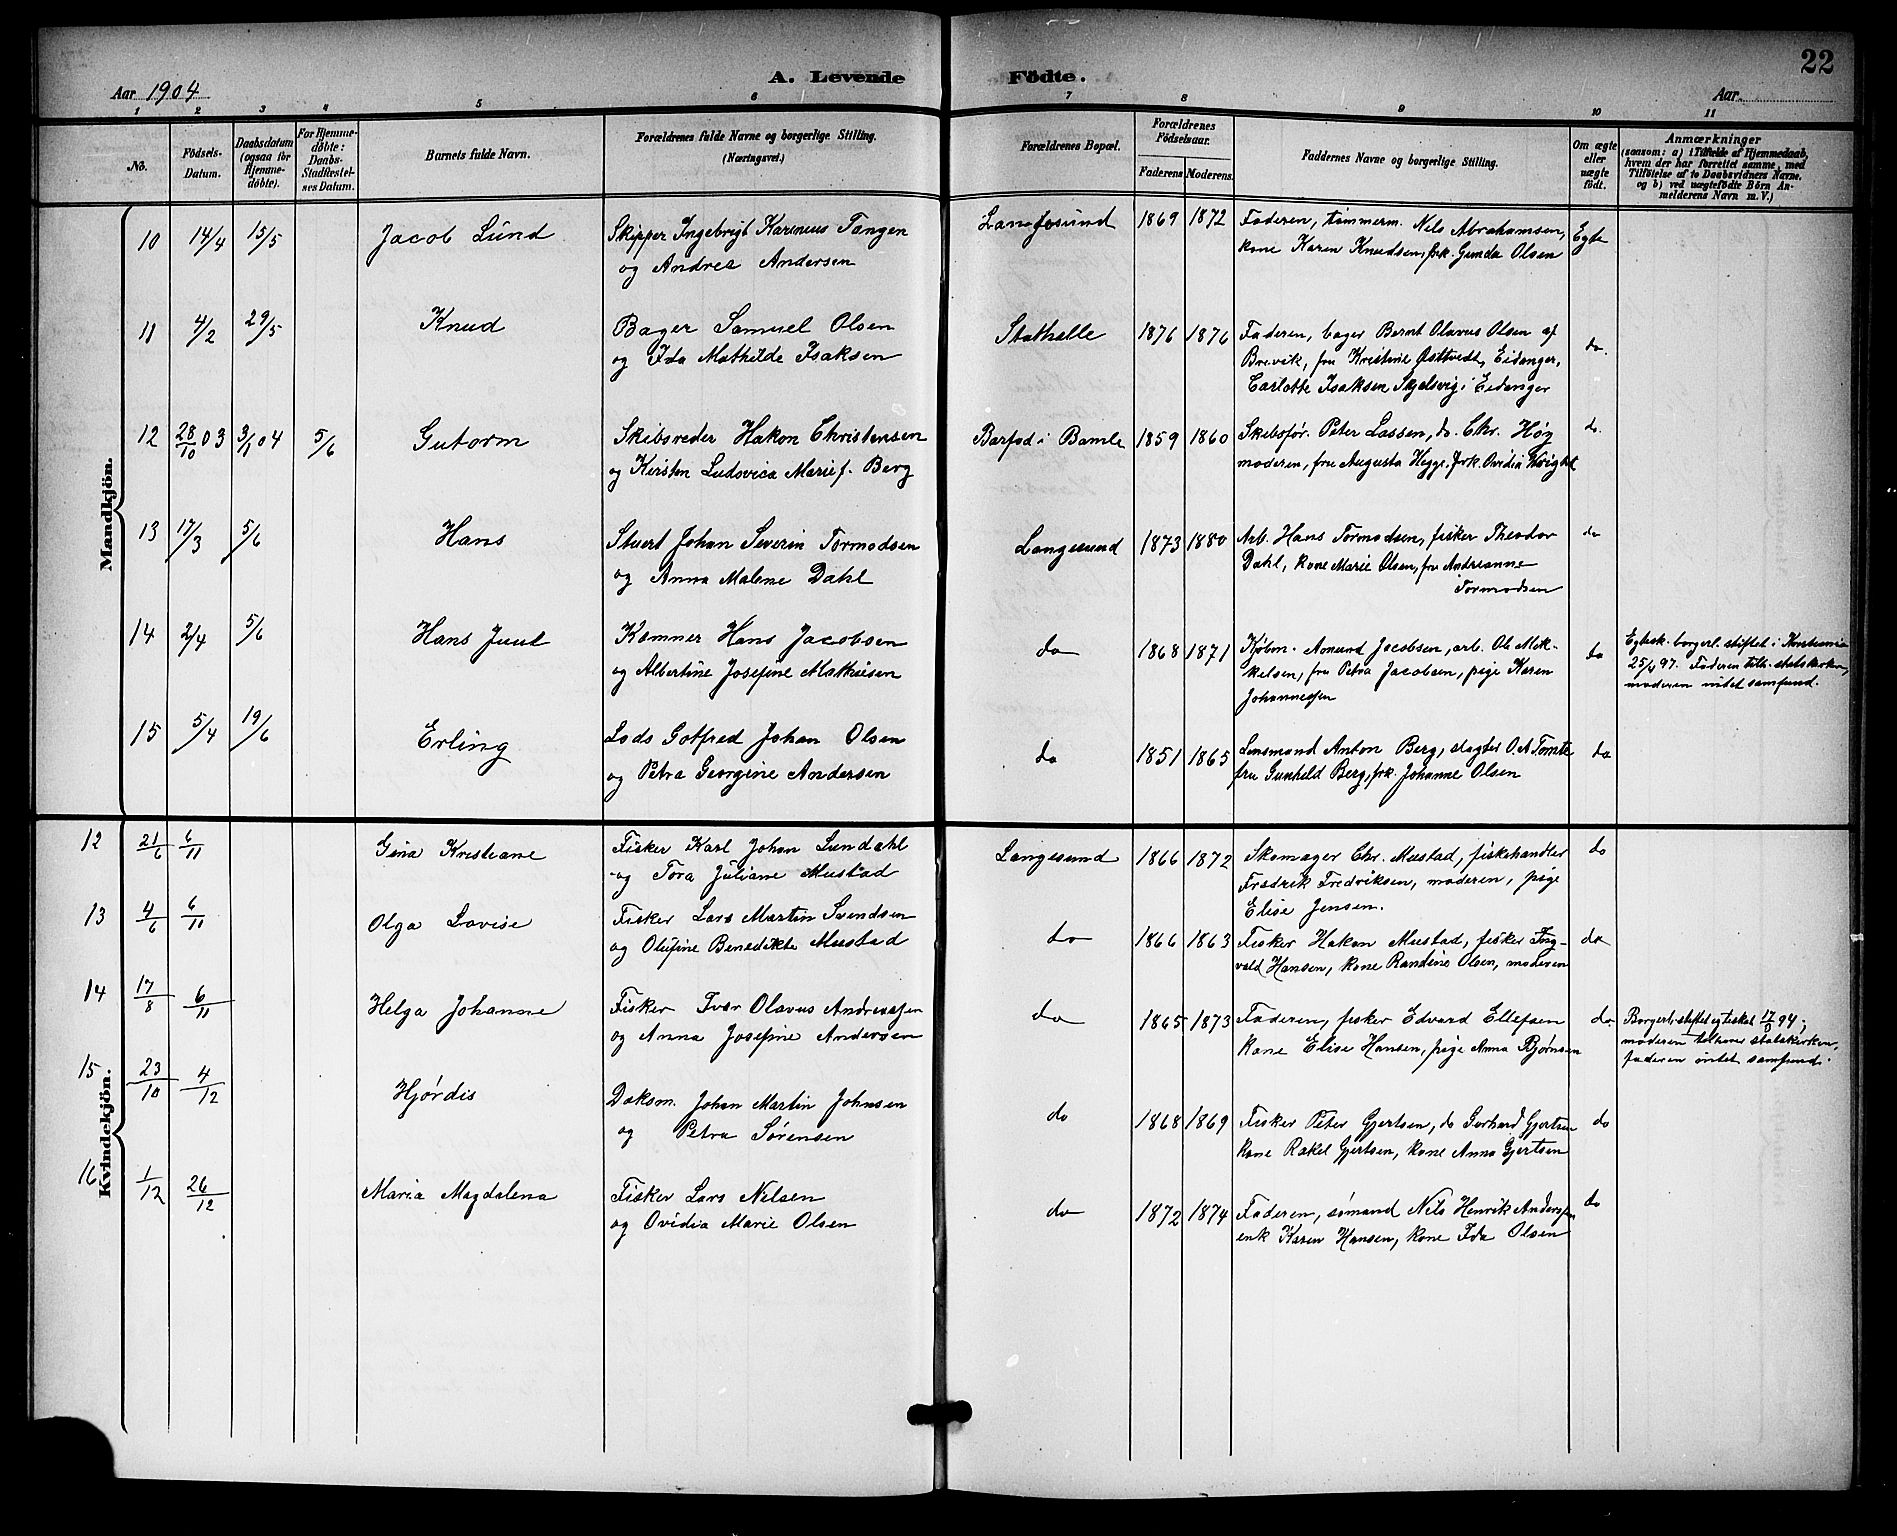 22
A. Levende Födte.
Aar 1904
Aar
1 2 3 4 5 6 7 8 9 10 11
No.
Födsels-Datum.
Daabsdatum (ogsaa for Hjemme-döbte).
For Hjemme-döbte: Daabs-Stadfæstel-ses Datum.
Barnets fulde Navn.
Forældrenes fulde Navne og borgerlige Stilling.
(Næringsvei.)
Forældrenes Bopæl.
Forældrenes Födselsaar.
Faderens. Moderens.
Faddernes Navne og borgerlige Stilling.
Om ægte eller uægte födt.
Anmærkninger
(saasom: a) i Tilfælde af Hjemmedaab, hvem der har forrettet samme, med Tilföielse af to Daabsvidners Navne, og b) ved uægtefödte Börn An-melderens Navn m. V.)
Mandkjön.
10 14/4 15/5 Jacob Lund Skipper Ingebrigt Karenius Tangen Langesund 1869 1872 Faderen, tømmerm. Nils Abrahamsen, Egte
og Andrea Andersen kone Karen Knudsen, frk. Gunda Olsen
11 4/2 29/5 Knud Bager Samuel Olsen Stathelle 1876 1876 Faderen, bager Bernt Olavus Olsen af do.
og Ida Mathilde Isaksen Brevik, fru Kristine Østtvedt, Eidanger,
Carlotte Isaksen Skjelsvig i Eidanger
12 28/10 03 3/1 04 5/6 Gutorm Skibsreder Hakon Christensen i Bamle 1859 1860 Skibsfør. Peter Lassen, do. Chr. Høg do.
og Kirsten Ludovica Marie f. Berg moderen, fru Augusta Hegge, frk. Ovidia Wright
13 17/3 5/6 Hans Stuert Johan Severin Tormodsen Langesund 1873 1880 Arb. Hans Tormodsen, fisker Theodor do
og Anna Malene Dahl Dahl, kone Marie Olsen, fru Andrianne
Tormodsen
14 2/4 5/6 Hans Juul Kæmner Hans Jacobsen do 1868 1871 Kjøbm. Amund Jacobsen, arb. Ole Mik- do Egtesk. borgerl. stiftet i Kristiania
og Albertine Josefine Mathisen kelsen, fru Petra Jacobsen, pige Karen 97. Faderen tilh. statskirken,
Johannessen moderen intet samfund.
15 5/4 19/6 Erling Lods Gotfred Johan Olsen do 1851 1865 Lensmand Anton Berg, slagter O. A Tomte do
og Petra Georgine Andersen fru Gunhild Berg, frk. Johanne Olsen
Kvindekjön.
12 21/6 6/11 Gina Kristiane Fisker Karl Johan Lundahl Langesund 1866 1872 Skomager Chr. Mustad, fiskehandler do
og Tora Juliane Mustad Fredrik Fredriksen, moderen, pige
Elise Jensen.
13 4/6 6/11 Olga Lovise Fisker Lars Martin Svendsen do 1866 1863 Fisker Hakon Mustad, fisker Ing- do
og Olufine Benedikte Mustad vald Hansen, kone Randine Olsen, moderen
14 17/8 6/11 Helga Johanne Fisker Ivar Olavus Andreassen do 1865 1873 Faderen, fisker Edvard Ellefsen do Borgerl. stiftet egteskab 94;
og Anna Josefine Andersen kone Elise Hansen, pige Anna Bjørnsen moderen tilhører statskirken,
faderen intet samfund.
15 23/10 4/12 Hjørdis Doksm. Johan Martin Johnsen do 1868 1869 Fisker Peter Gjertsen, do Gerhard Gjertsen do
og Petra Sørensen kone Rakel Gjertsen, kone Anna Gjertsen
16 1/12 26/12 Maria Magdalena Fisker Lars Nilsen do 1872 1874 Faderen, sømand Nils Henrik Anderssen do
og Ovidia Marie Olsen enk Karen Hansen, kone Ida Olsen